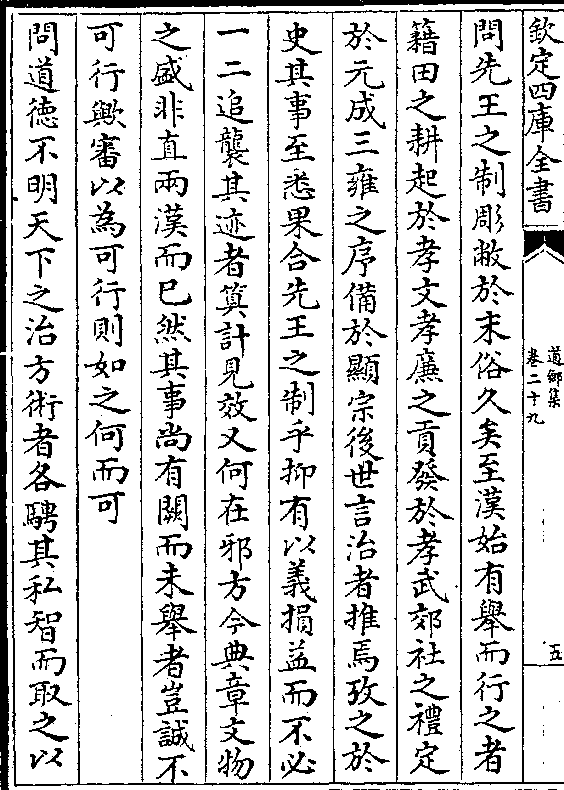 欽定四庫全書
道鄉集
卷二十九
五
問先王之制彫敝於末俗久矣至漢始有舉而行之者
籍田之耕起於孝文孝廉之貢發於孝武郊社之禮定
於元成三雍之序備於顯宗後世言治者推焉攷之於
史其事至悉果合先王之制乎抑有以義損益而不必
一二追襲其迹者筭計見效又何在邪方今典章文物
之盛非直兩漢而已然其事尚有闕而未舉者豈誠不
可行歟審以為可行則如之何而可
問道德不明天下之治方術者各騁其私智而取之以